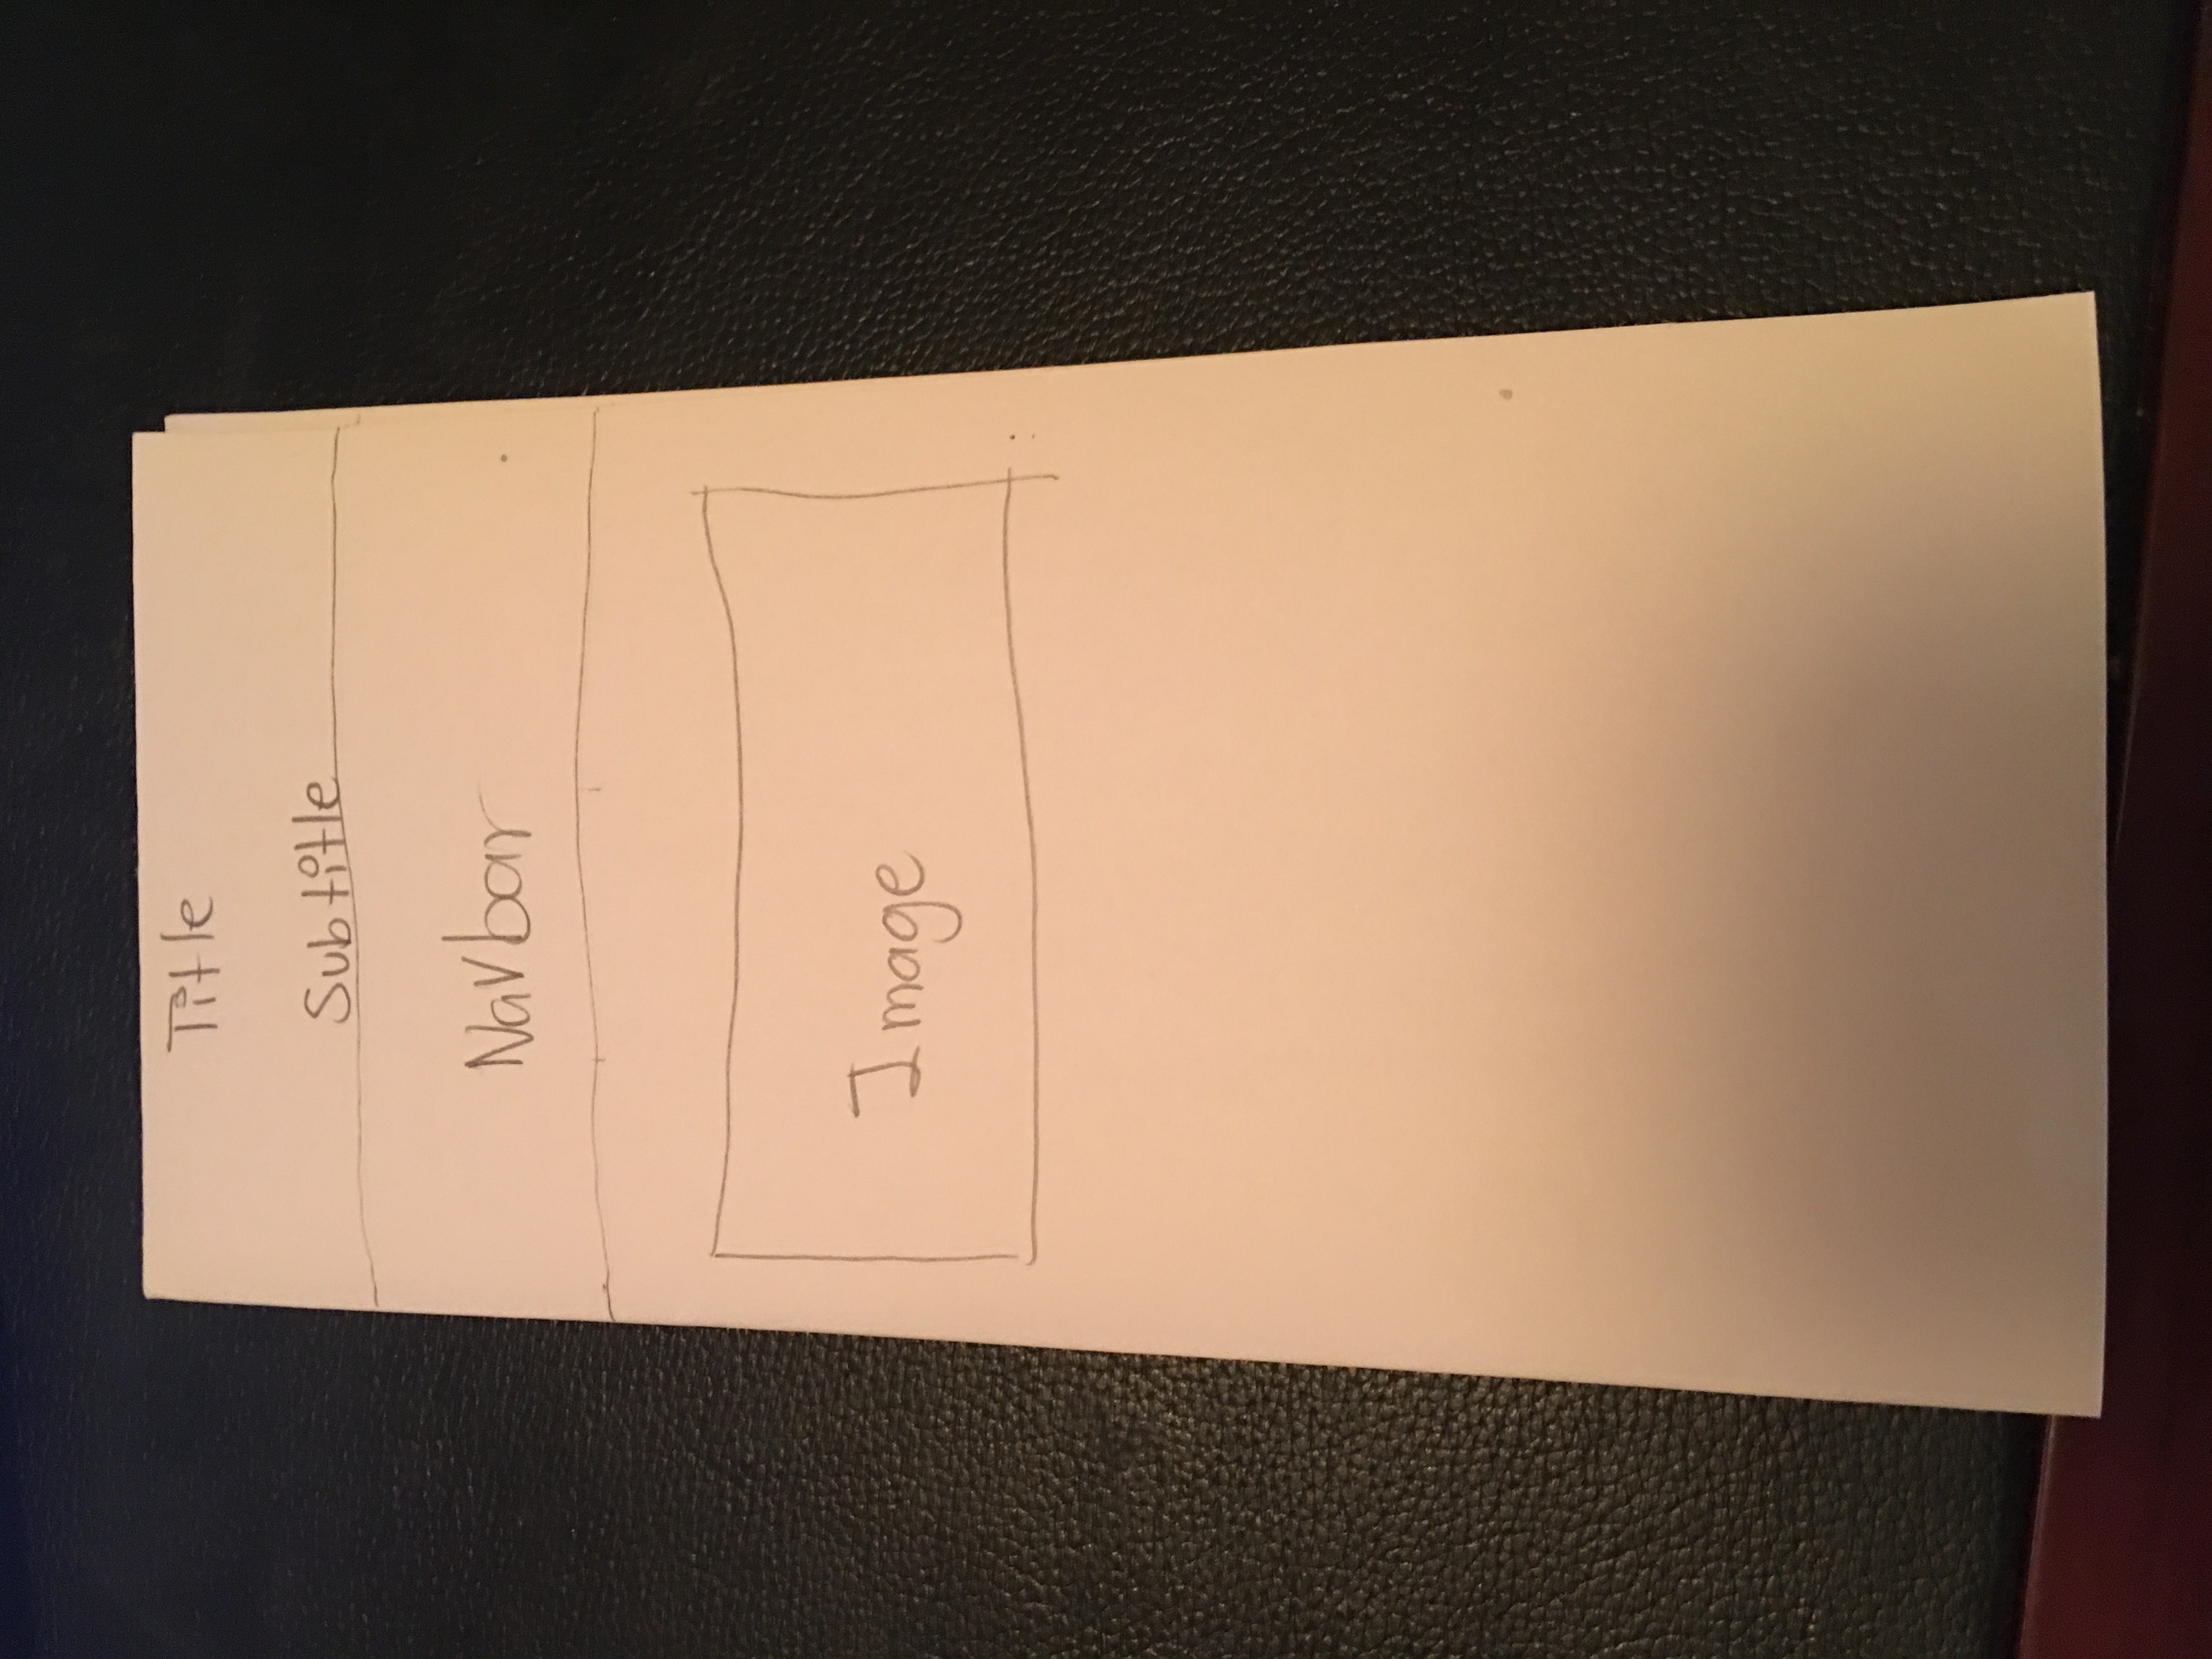 Title
Subtitle
Navbar
Image